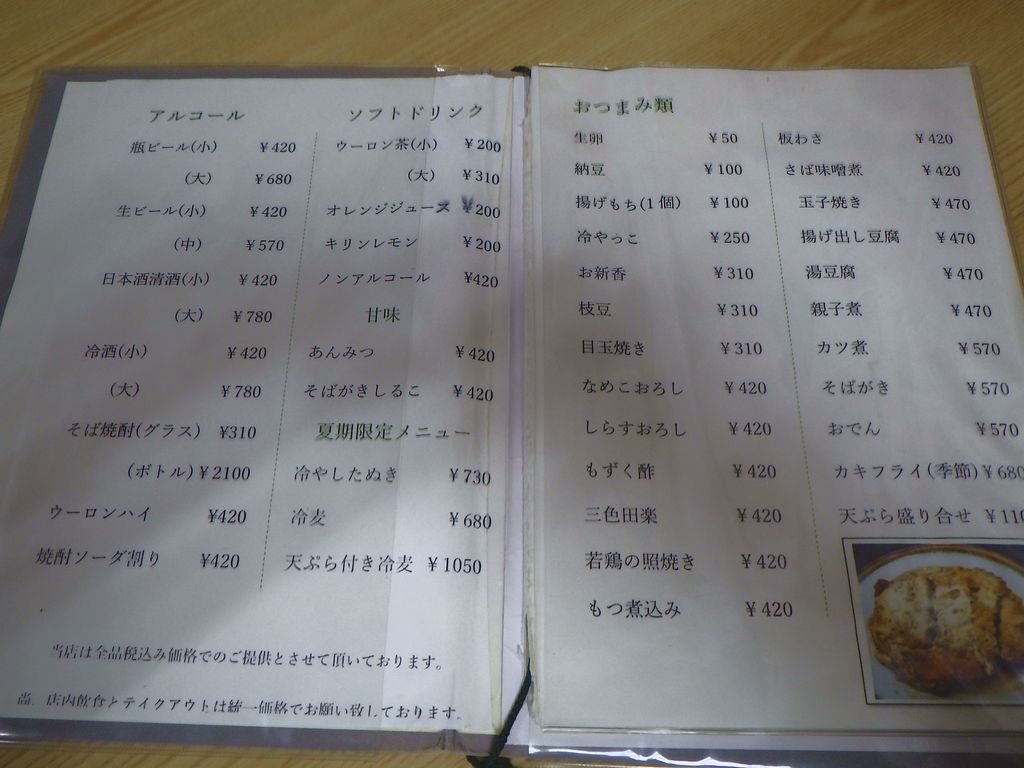 アルコール
瓶ビール(小) ¥420
(大) ¥680
生ビール(小) ¥420
(中) ¥570
日本酒清酒(小) ¥420
(大) ¥780
冷酒(小) ¥420
(大) ¥780
そば焼酎(グラス) ¥310
(ボトル) ¥2100
ウーロンハイ ¥420
焼酎ソーダ割り ¥420
ソフトドリンク
ウーロン茶(小) ¥200
(大) ¥310
オレンジジュース ¥200
キリンレモン ¥200
ノンアルコール ¥420
甘味
あんみつ ¥420
そばがきしるこ ¥420
夏期限定メニュー
冷やしたぬき ¥730
冷麦 ¥680
天ぷら付き冷麦 ¥1050
当店は全品税込み価格でのご提供とさせて頂いております。
尚、店内飲食とテイクアウトは統一価格でお願い致しております。
おつまみ類
生卵 ¥50
納豆 ¥100
揚げもち(1個) ¥100
冷やっこ ¥250
お新香 ¥310
枝豆 ¥310
目玉焼き ¥310
なめこおろし ¥420
しらすおろし ¥420
もずく酢 ¥420
三色田楽 ¥420
若鶏の照焼き ¥420
もつ煮込み ¥420
板わさ ¥420
さば味噌煮 ¥420
玉子焼き ¥470
揚げ出し豆腐 ¥470
湯豆腐 ¥470
親子煮 ¥470
カツ煮 ¥570
そばがき ¥570
おでん ¥570
カキフライ(季節) ¥680
天ぷら盛り合せ ¥110